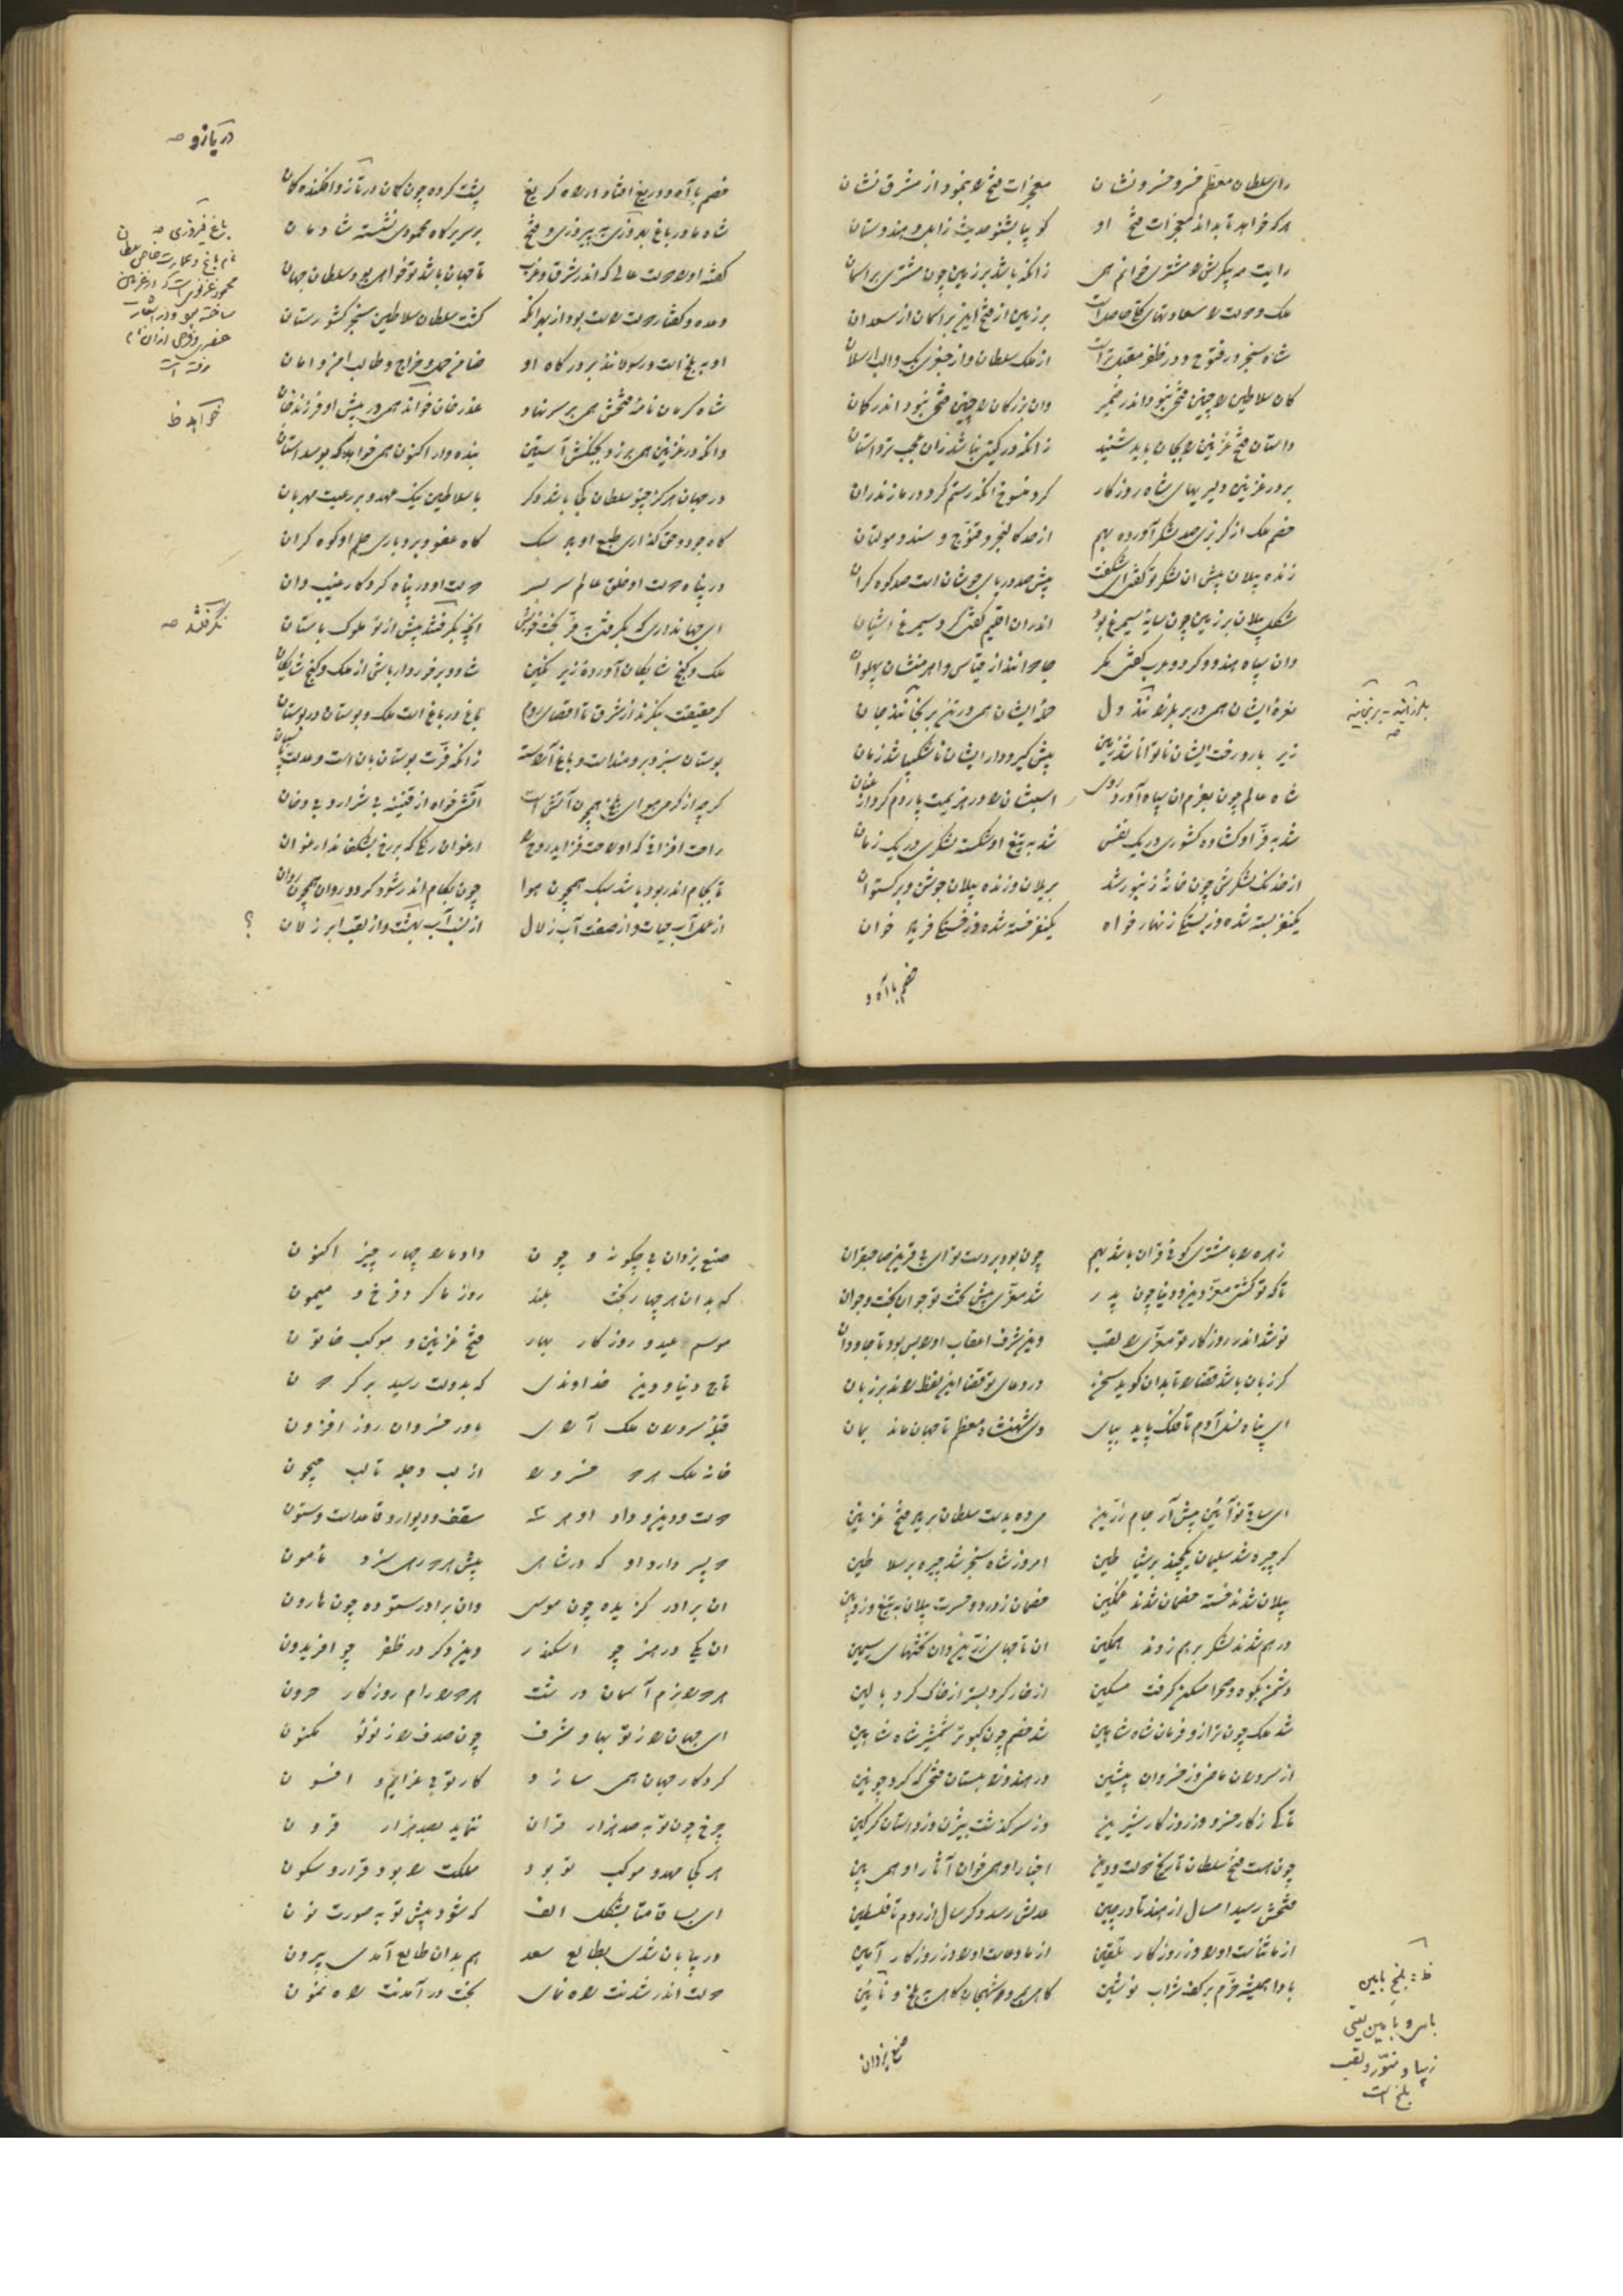 رای سلطان معظم خسرو خسرو نشان معجزات فتح را بنمود از مشرق نشان
هرکه خواهد تا بداند معجزات فتح او گو بیا بشنو حدیث زابل و هندوستان
رایت مه پیکرش را مشتری خوانم همی زانکه باشد بر زمین چون مشتری بر آسمان
ملک و دولت را سعادتهای حاصل است بر زمین از فتح این بر آسمان از سعد آن
شاه سنجر در فتوح و در ظفر مقبل‌تر است از ملک سلطان و از جغری بک و الب ارسلان
کان سلاطین را چنین فتحی نبود اندر ضمیر وان بزرگان را چنین فتحی نبود اندر گمان
داستان فتح غزنین را بجان باید شنید زانکه در گیتی نباشد زان عجب‌تر داستان
بر در غزنین دلیریهای شاه روزگار کرد منسوخ آنکه رستم کرد در مازندران
خصم ملک از گربزی صد لشکر آورده بهم از حد کالنجر و قنوج و سند و مولتان
زنده پیلان پیش آن لشکر تو گفتی ای شگفت پیش صد دریای جوشان است صد کوه گران
شکل پیلان بر زمین چون سایه سیمرغ بود اندران اقلیم گفتی کرد سیمرغ آشیان
وان سپاه هندو و کرد و عرب گفتی مگر جادوانند از قیاس و اهرمنشان پهلوان
نعره ایشان همی در بر بلرزانند دل حمله ایشان همی در تن برنجانند جان
زیر بار و رخت ایشان ناتوانا شد زمین پیش گیر و دار ایشان ناشکیبا شد زمان
شاه عالم چون بعزم آن سپاه آورد روی اسبشان را در هزیمت پاردم کرد از عنان
شد به فر او گشاده کشوری در یک نفس شد به تیغ او شکسته لشکری در یک زمان
از خدنگ لشکرش چون خانه زنبور شد بر یلان و زنده پیلان جوشن و برگستوان
یکنفر بسته شده وز بستگی زنهار خواه یکنفر خسته شده وز خستگی فریاد خوان
خصم با آه و
بلرزانید - برنجانید
خصم با آه و دریغ افتاد در راه گریغ پشت کرده چون کمان در تاز و افکنده کمان
شاه ما در باغ پیروزی به پیروزی و فتح بر سریر گاه محمودی نشسته شادمان
گفته او را دولت عالی که اندر شرق و غرب تا جهان باشد تو خواهی بود سلطان جهان
وعده و گفتار دولت راست بود از بهر آنکه گشت سلطان سلاطین سنجر کشور ستان
او به بلخ است و رسولانند بر درگاه او ضامن حمل و خراج و طالب امن و امان
شاه کرمان نامه فتحش همی بر سر نهاد عذر خان خواند همی در پیش او فرزند خان
وانکه در غزنین همی برزد بجنگش آستین بنده‌وار اکنون همی خواهد که بوسد آستان
در جهان هرگز چنو سلطان کجا باشد دگر با سلاطین نیک عهد و بر رعیت مهربان
گاه جود و حق گذاری طبع او باد سبک گاه عفو و بردباری حلم او کوه گران
در پناه دولت او خلق عالم سر بسر دولت او در پناه کردگار غیب دان
ای جهانداری که بگرفتی به فر بخت خویش آنچه بگرفتند پیش از تو ملوک باستان
ملک و گنج شایگان آورده زیر نگین شاد و برخوردار باش از ملک و گنج شایگان
گر حقیقت بنگرند از شرق تا اقصای روم باغ در باغ است ملک و بوستان در بوستان
بوستان سبز و برومند است و باغ آراسته زانکه فرت بوستان بان است و عدلت پاسبان
گرچه از گرمی هوای بلخ همچون آتش است آتشی خواه از قنینه بی شرار و بی دخان
راحت افزائی که او راحت فزاید روح را ارغوان رنگی که بر رخ بشکفاند ارغوان
تا بجام اندر بود باشد سبک همچون هوا چون بکام اندر شود گردد روان همچون روان
از عمل آب حیات و از صفت آب زلال از نسب آب بهشت و از لقب ابر زلان
در بازو
باغ فیروزی
نام باغ و عمارت خاص سلطان
محمود غزنوی است که در غزنین
ساخته بود و در اشعار
عنصری و فرخی از آن نام
رفته است
خواهد ظ
بگرفتند
؟
زهره را با مشتری گوئی قران باشد بهم چون بود بر دست تو ای بی قرین صاحبقران
تا که تو گشتی معز دین و دنیا چون پدر شد معزی پیش تخت تو جوان بخت و جوان
تو شد اندر روزگار تو معزی را لقب وین شرف اعقاب او را بس بود تا جاودان
گر زبان باشد قضا را تا بدان گوید سخن در دعای تو قضا این لفظ راند بر زبان
ای پناه نسل آدم تا فلک پاید بپای وی شهنشاه معظم تا جهان ماند بمان
ای ساقی نو آئین پیش آر جام زرین می ده بدست سلطان بر یاد فتح غزنین
گر چیره شد سلیمان یکچند بر شیاطین امروز شاه سنجر شد چیره بر سلاطین
پیلان شدند خسته خصمان شدند غمگین خصمان ز درد و حسرت پیلان به تیغ و زوبین
درهم شدند لشکر برهم زدند همگین آن تاجهای زرین وان تختهای سیمین
دشمن بکوه و صحرا مسکن گرفت مسکین از خار کرد بستر از خاک کرد بالین
شد ملک چون ترازو فرمان شاه شاهین شد خصم چون کبوتر شمشیر شاه شاهین
از سروران ماضی وز خسروان پیشین در هند و زابلستان فتحی که کرد چونین
تا کی ز کار خسرو وز روزگار شیرین وز سرگذشت بیژن وز داستان گرگین
چون هست فتح سلطان تاریخ دولت و دین اخبار او همی خوان آثار او همی بین
فتحش رسید امسال از هند تا در چین عدلش رسد دگر سال از روم تا فلسطین
از ما ثناست او را وز روزگار تلقین از ما دعاست او را وز روزگار آمین
بادا همیشه خرم بر کف شراب نوشین
صنع یزدان
ظ : بلخ بامین
بامی و بامین یعنی
زیبا و منور و لقب
بلخ است
صنع یزدان بی چگونه و چون داد ما را چهار چیز اکنون
که بدان هر چهار بخت بلند روز ما کرد فرخ و میمون
موسم عید و روزگار بهار فتح غزنین و موکب خاتون
تاج دنیا و دین خداوندی که بدولت رسید بر گردون
قبله سروران ملک آرای مادر خسروان روز افزون
خانه ملک هر دو خسرو را از لب دجله تا لب جیحون
دولت و دین و داد او هر سه سقف و دیوار و قاعده است و ستون
دو پسر دارد او که در شاهی پیش هر دو رهی سزد مأمون
آن برادر گزیده چون موسی وان برادر ستوده چون هارون
آن یکی در هنر چو اسکندر وین دگر در ظفر چو افریدون
هر دو را رام روزگار حرون
ای جهان را ز تو بها و شرف چون صدف را ز لؤلؤ مکنون
کردگار جهان همی سازد کار تو بی عزایم و افسون
چرخ چون تو به صد هزار قران ننماید بصد هزار قرون
هر کجا مهد و موکب تو بود مملکت را بود قرار و سکون
ای بسا قامتا بشکل الف که شود پیش تو به صورت نون
در بیابان شدی بطالع سعد هم بدان طالع آمدی بیرون
دولت اندر شدنت راه نمای بخت در آمدنت راه نمون